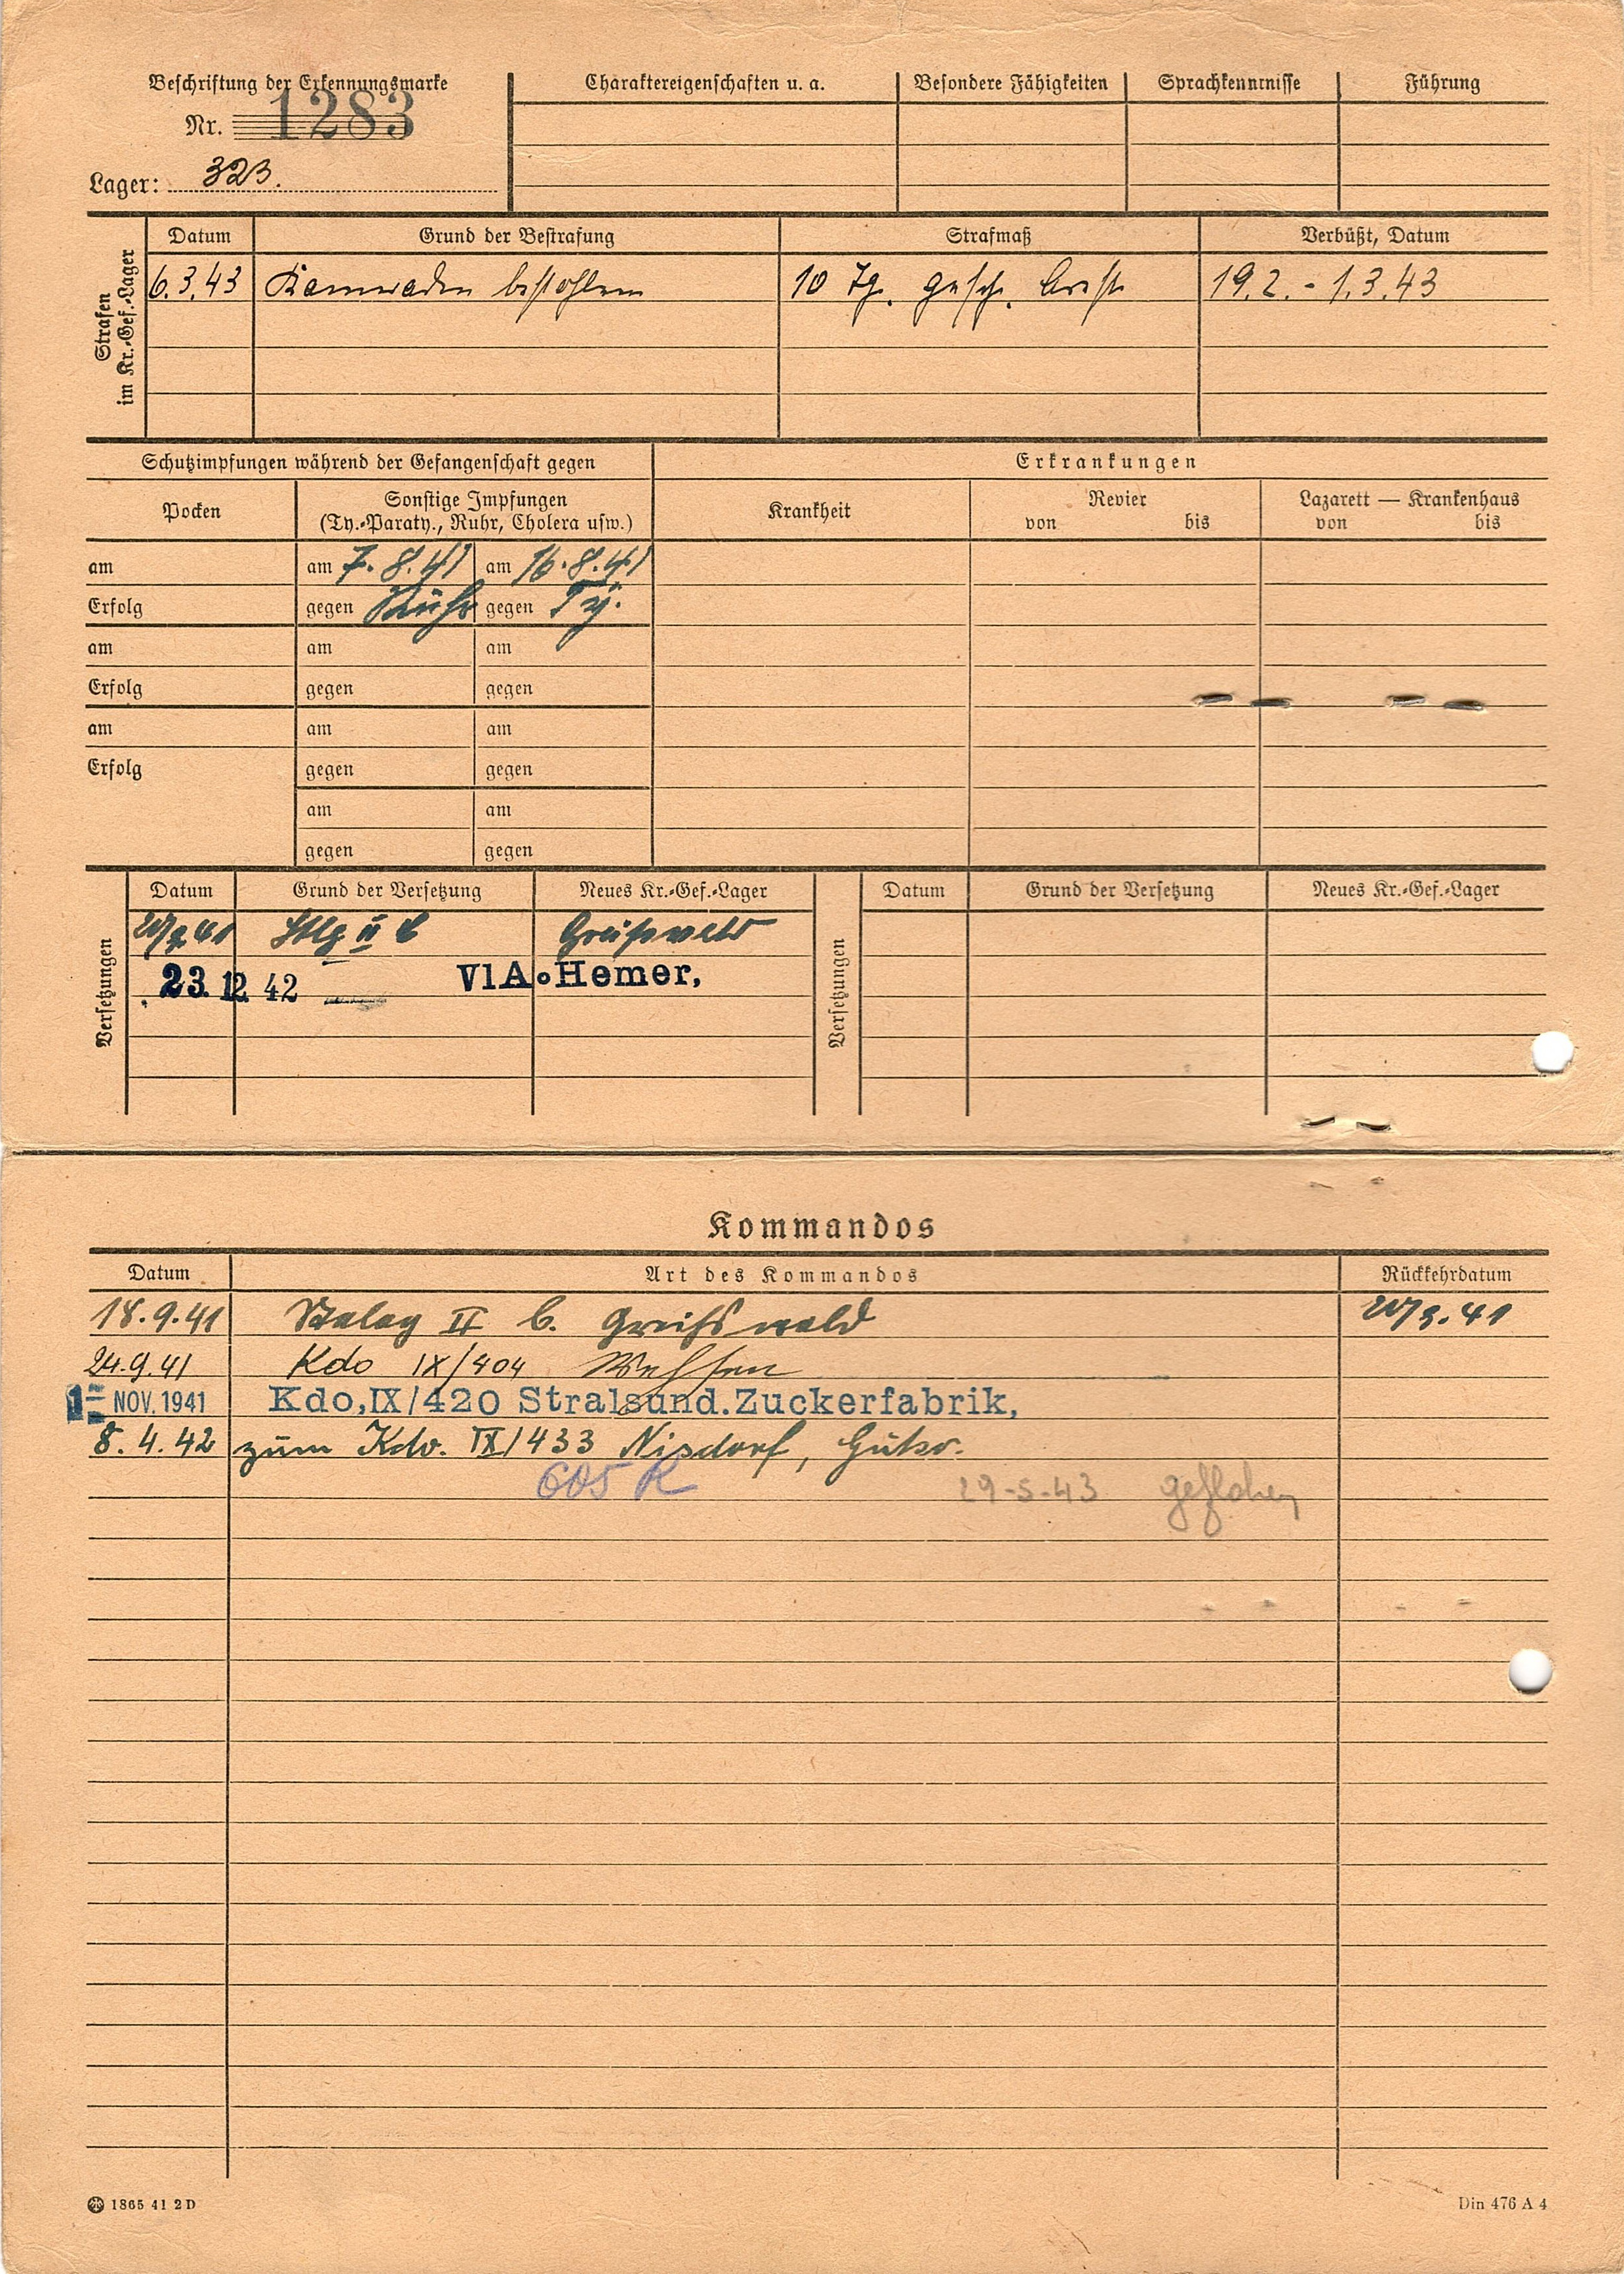 Beschriftung der Erkennungsmarke
Nr. 1283
Lager: 323.
Charaktereigenschaften u. a. Besondere Fähigkeiten Sprachkenntnisse Führung
Strafen im Kr.-Gef.-Lager
Datum Grund der Bestrafung Strafmaß Verbüßt, Datum
6.3.43 Kameraden bestohlen 10 Tg. gesch. Arest 19.2. - 1.3.43
Schutzimpfungen während der Gefangenschaft gegen Erkrankungen
Pocken Sonstige Impfungen Krankheit Revier Lazarett — Krankenhaus
(Ty.-Paraty., Ruhr, Cholera usw.) von bis von bis
am am 7.8.41 am 16.8.41
Erfolg gegen Ruhr gegen Ty.
am am am
Erfolg gegen gegen
am am am
Erfolg gegen gegen
am am
gegen gegen
Versetzungen
Datum Grund der Versetzung Neues Kr.-Gef.-Lager
Versetzungen
Datum Grund der Versetzung Neues Kr.-Gef.-Lager
Stlg II C Greifswald
23. 12. 42 VIA. Hemer,
Kommandos
Datum Art des Kommandos Rückkehrdatum
18.9.41 Stalag II C. Greifswald
24.9.41 Kdo IX/404
1= NOV. 1941 Kdo,IX/420 Stralsund.Zuckerfabrik,
8.4.42 zum Kdo. IX/433 Nisdorf,
605 R 29-5-43 geflohen
1865 41 2 D Din 476 A 4